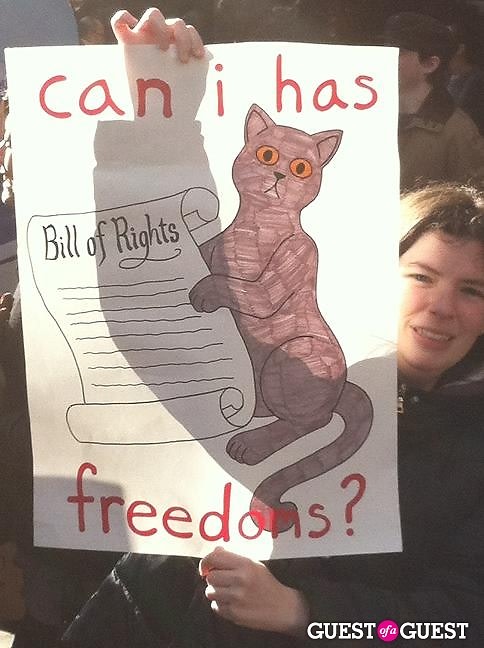 can i has
Bill of Rights
freedoms?
GUEST of a GUEST